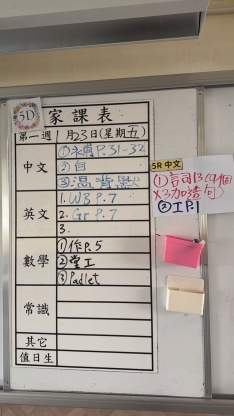 5D
家課表
第一週 1月23日(星期五)
中文
①永備P.31-32
②自
③溫背默
英文
1. WB P.7
2. Gr P.7
3.
數學
①作P.5
②堂工
③Padlet
常識
其它
值日生
5R 中文
②工P.1